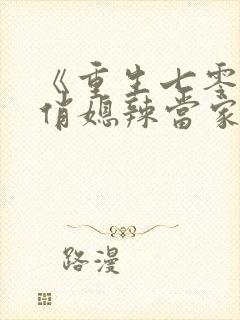 《重生七零
俏媳辣當家
路漫